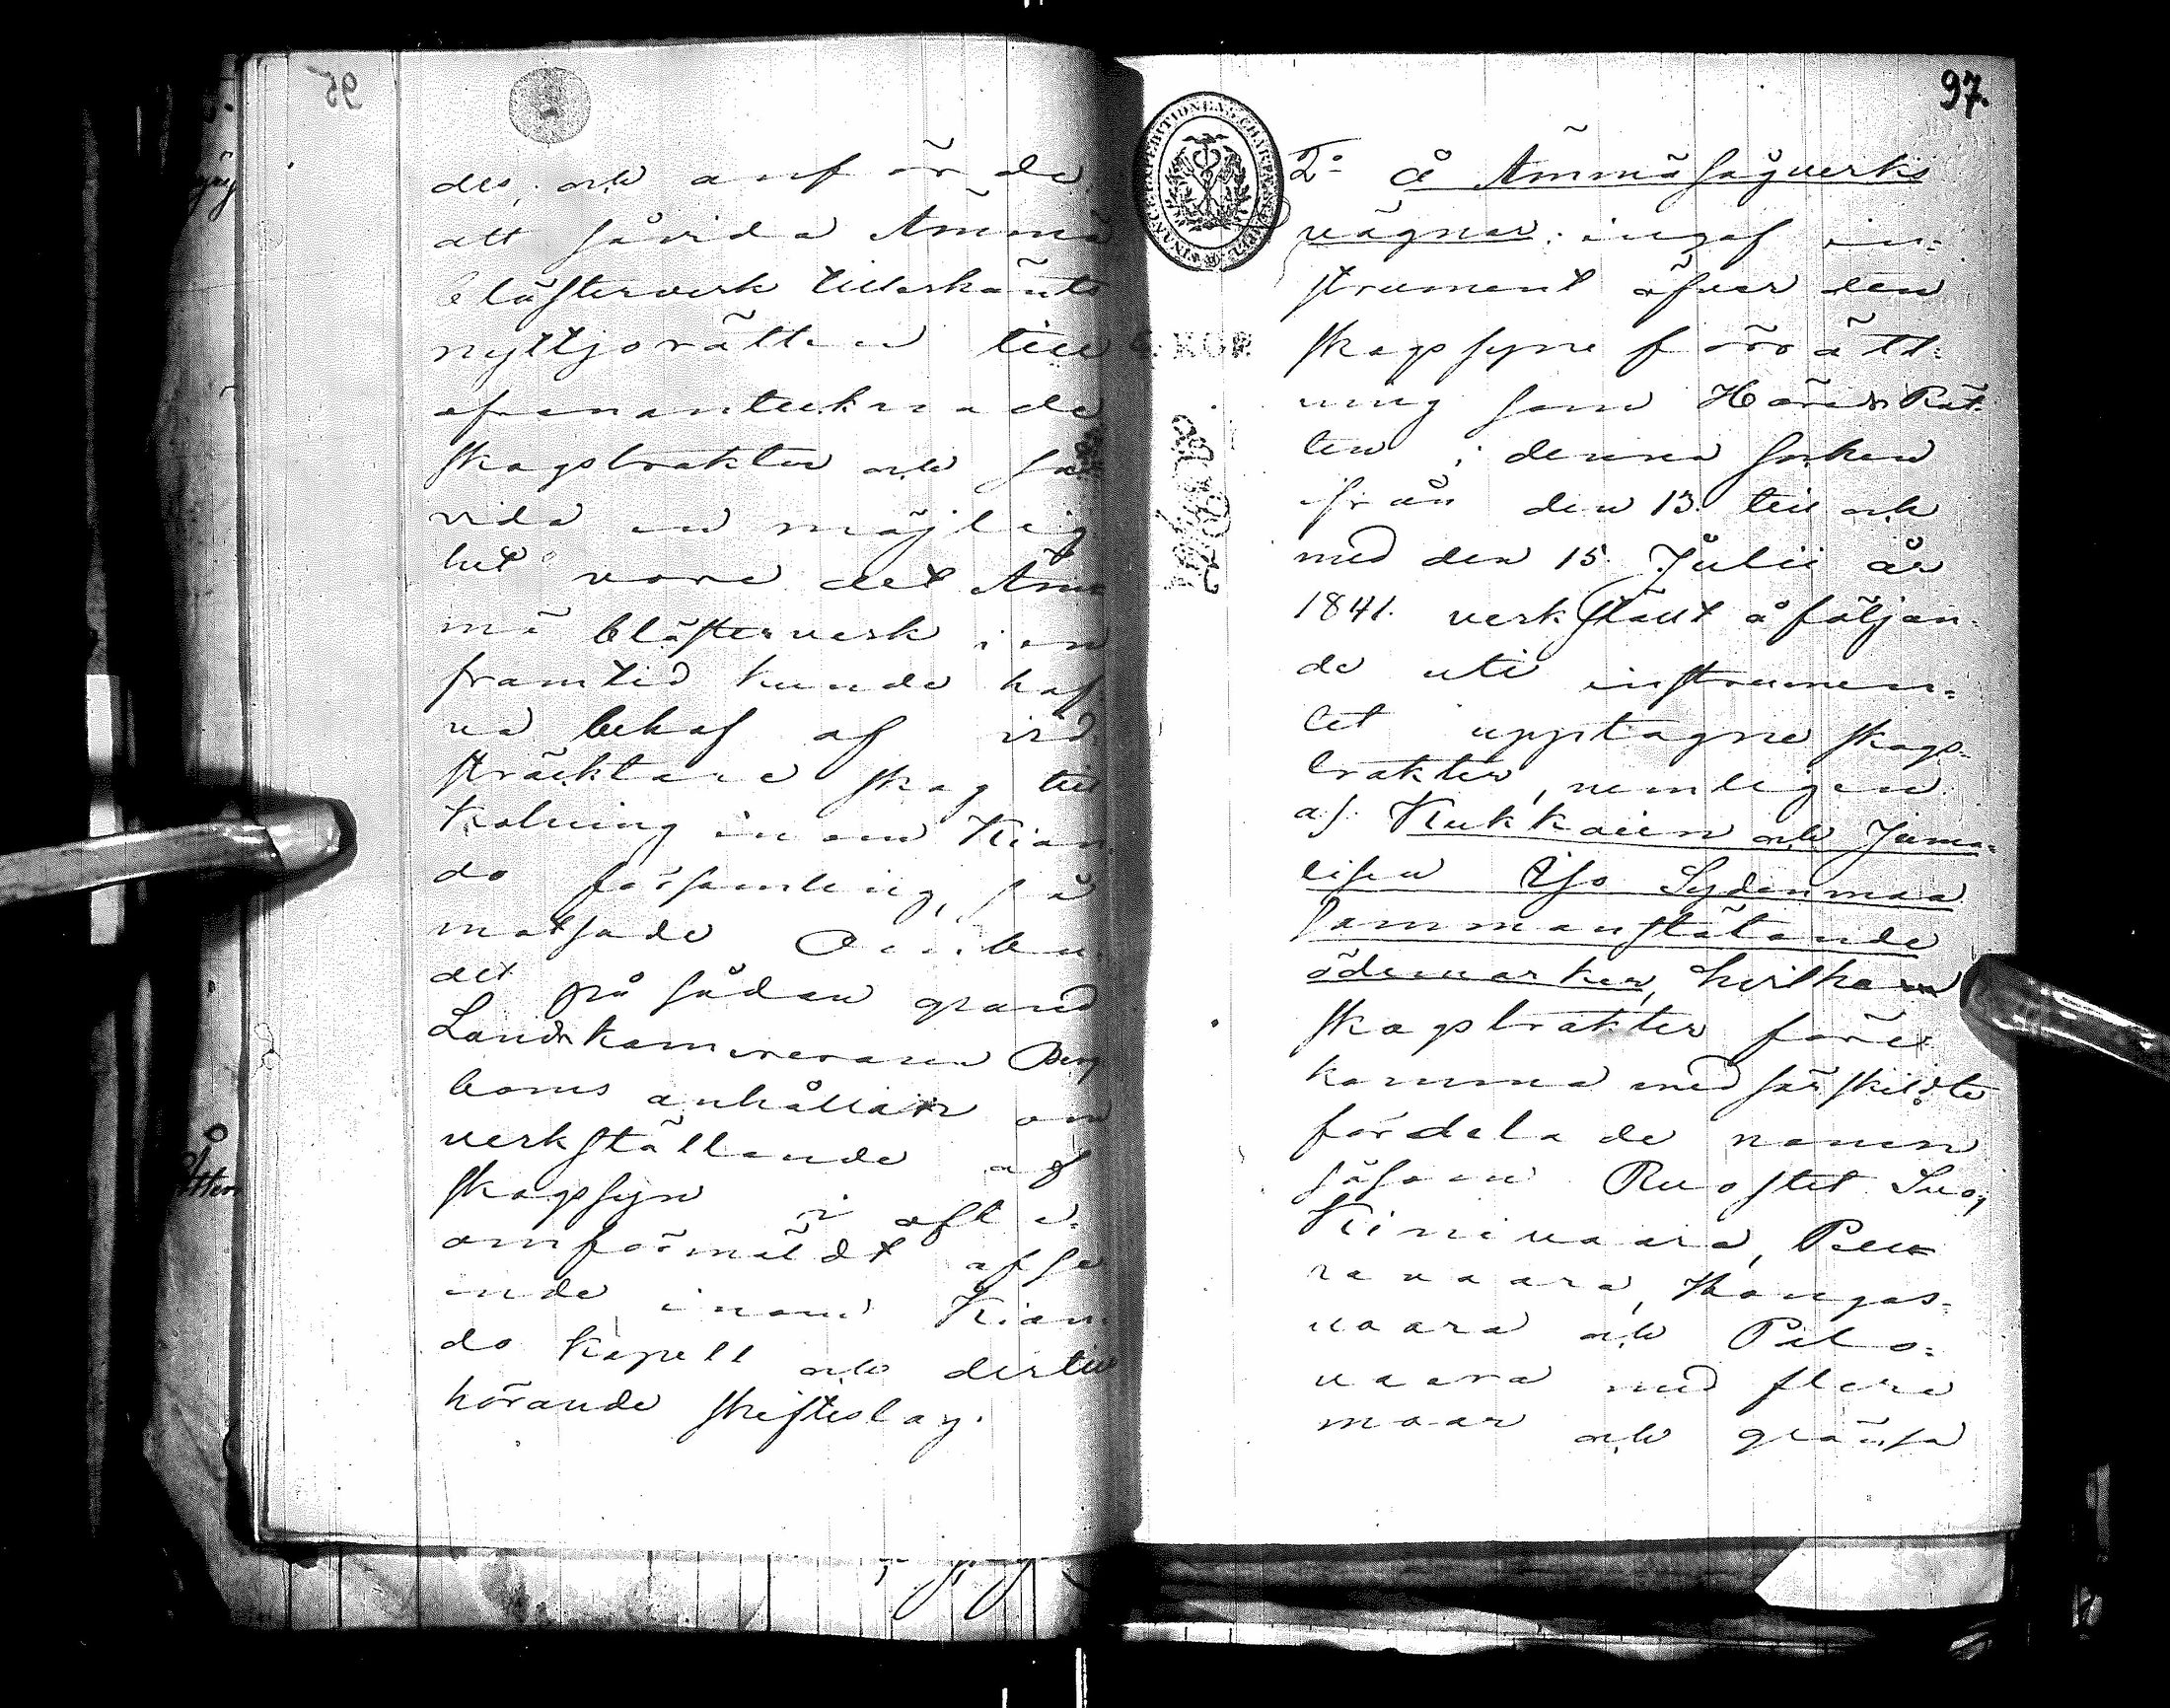 des, och anförde
att såvida Ämmä
blästerverk tillerkänts
nyttjorätten till
ofvananteeknade
skogstrakter och så
vida en möjlig
het vore det Äm
mä blästerverk i en
framtid kunde haf
va behof af vid
sträcktare skog till
kolning inom Kian
do församling, på
det på sådan grund
Landskamreraren Berg
boms anhållan om
verkställande af
skogssyn i ofta
omförmäldt afse
ende inom Kian
do kapell och dertill
hörande skifteslag.
97.
2:o å Ämmä sågverks
vägnar: ingaf in=
strument öfver den
skogssyne förrätt=
ning som Härads Rät
ten i denna socken
från den 13. till och
med den 15. Julii år
1841. verkstält å följan
de uti instrumen=
tet upptagne skogs=
trakter, nemligen
a). Kukkoien och Juma=
lisen Iso Sydenmaa
sammanstötande
ödemarker, hvilka
skogstrakter före
komma med särskildte
fördelade namn
såsom Ruostet Suo,
Kinivaara, Peu
ravaara, Kangas=
vaara och Palo=
vaara med flera
moar och gränsa